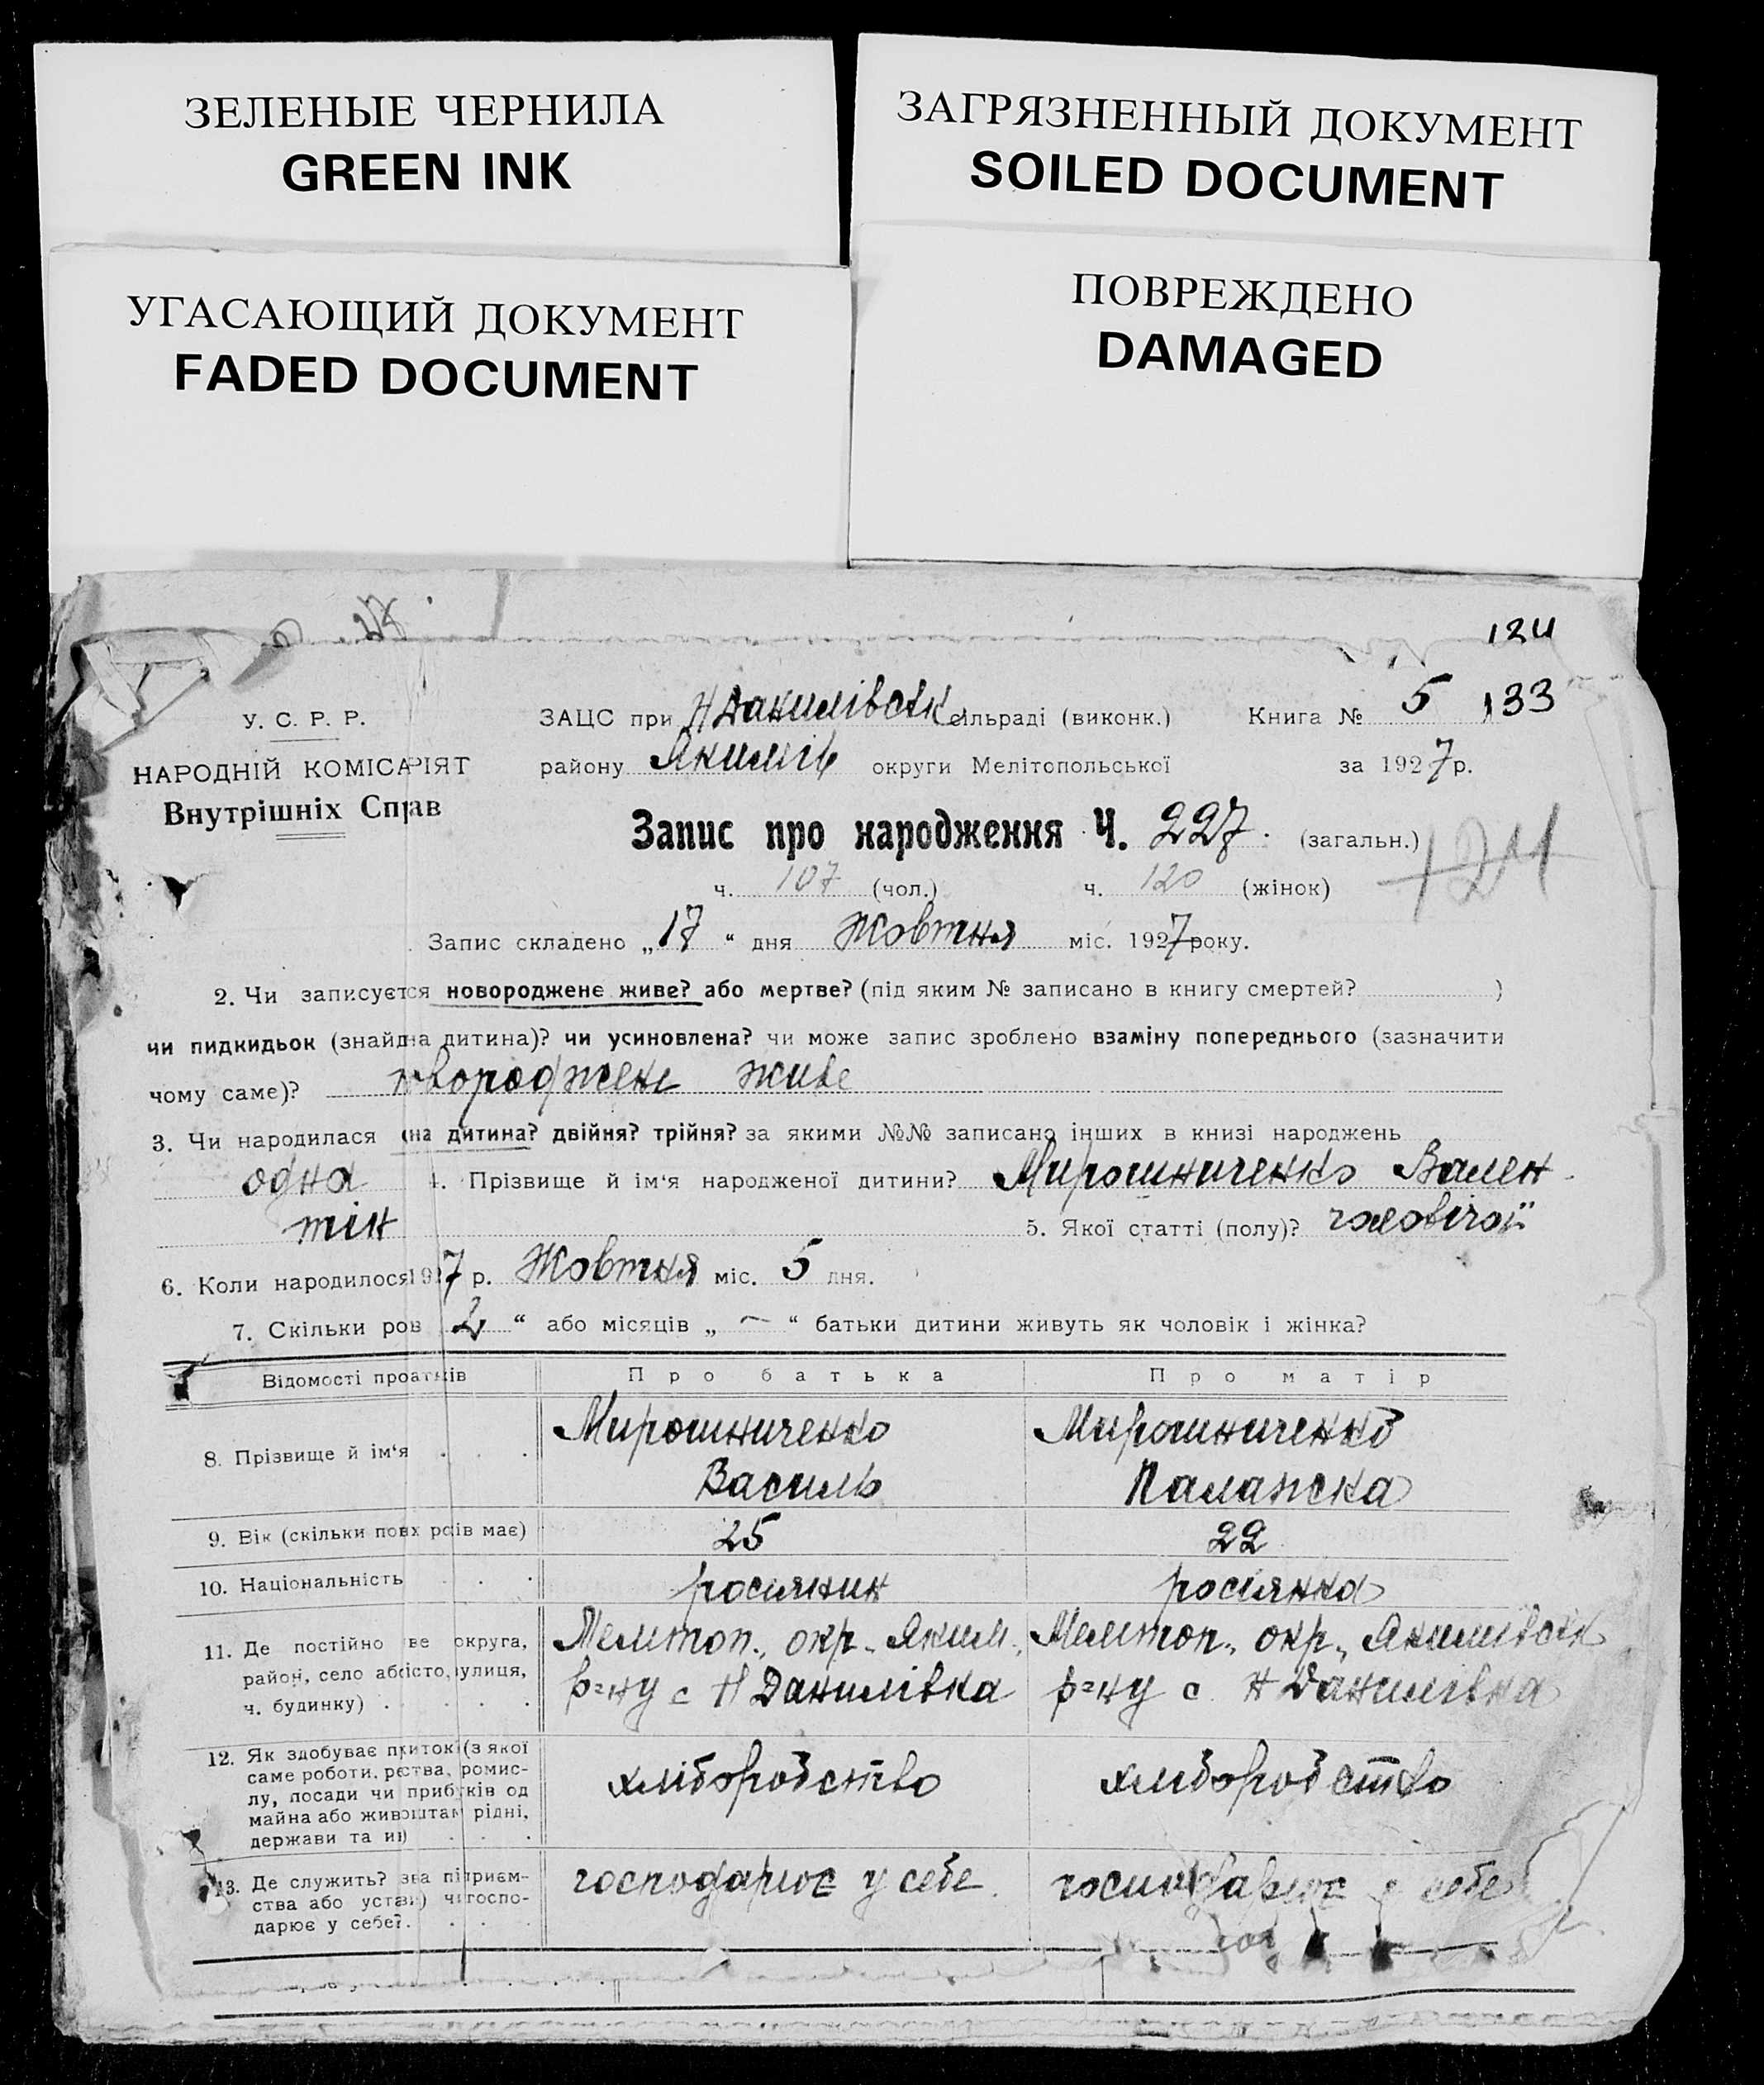 ЗЕЛЕНЫЕ ЧЕРНИЛА
GREEN INK
ЗАГРЯЗНЕННЫЙ ДОКУМЕНТ
SOILED DOCUMENT
УГАСАЮЩИЙ ДОКУМЕНТ
FADED DOCUMENT
ПОВРЕЖДЕНО
DAMAGED
124
У. С. Р. Р.
ЗАЦС при Н Данилівськ сільраді (виконк.) Книга № 5 133
НАРОДНІЙ КОМІСАРІЯТ
району Якимів округи Мелітопольської за 1927 р.
Внутрішніх Справ
Запис про народження Ч. 227. (загальн.) 124
ч. 107 (чол.) ч. 120 (жінок)
Запис складено „17“ дня Жовтня міс. 1927 року.
2. Чи записується новороджене живе? або мертве? (під яким № записано в книгу смертей? )
чи пидкидьок (знайд на дитина)? чи усиновлена? чи може запис зроблено взаміну попереднього (зазначити
чому саме)? новороджене живе
3. Чи народилася на дитина? двійня? трійня? за якими №№ записано інших в книзі народжень
одна 4. Прізвище й ім'я народженої дитини? Мирошниченко Вален-
тін 5. Якої статті (полу)? чоловічої
6. Коли народилося 1927 р. Жовтня міс. 5 дня.
7. Скільки ров 2 “ або місяців „ — “ батьки дитини живуть як чоловік і жінка?
Відомості про Про батька Про матір
8. Прізвище й ім'я Мирошниченко Мирошниченко
Василь Палажка
9. Вік (скільки пов х ро ів має) 25 22
10. Національність росіянин росіянка
11. Де постійно ве округа, Мелітоп., окр., Яким. Мелітоп., окр., Якимівськ
район, село аб істо, улиця, р=ну с Н Данилівка р=ну с. Н Данилівка
ч. будинку)
12. Як здобуває п иток (з якої
саме роботи, ре тва, ромис-
лу, посади чи прибутків од хліборобство хліборобство
майна або жив штам рідні,
держави та ин)
13. Де служить? з ва підприєм- господарює у себе. господарює у себе
ства або устан) чи госпо-
дарює у себе?